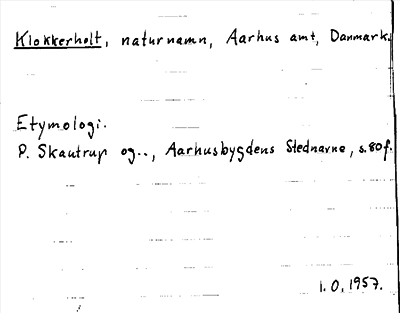 Klokkerholt, naturnamn, Aarhus amt, Danmark.
Etymologi.
P. Skautrup og.., Aarhusbygdens Stednavne, s.80f.
1.O, 1957.